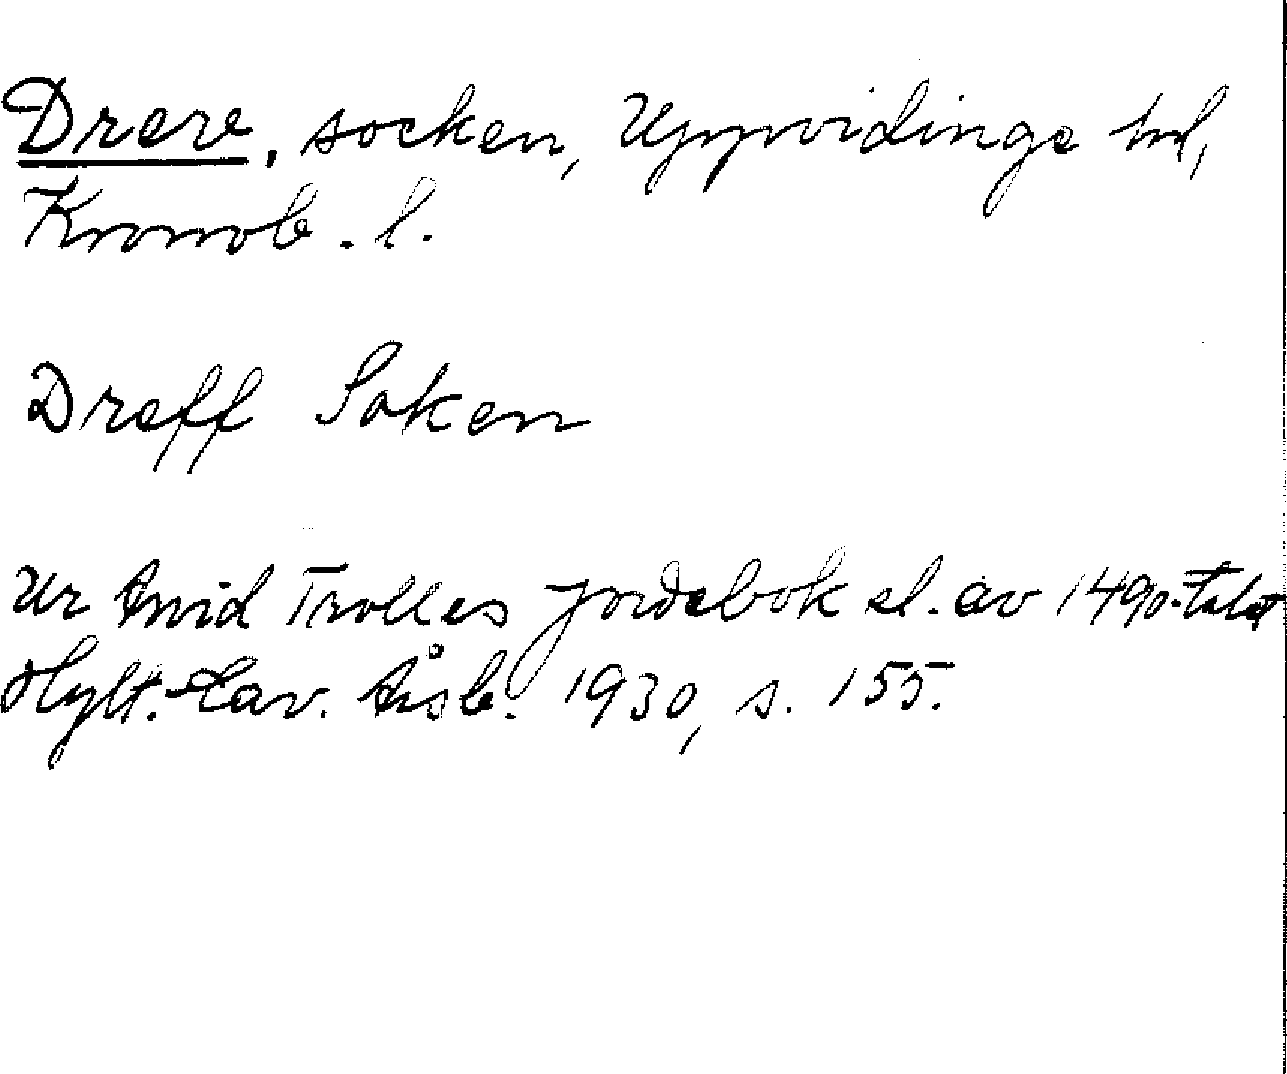 Dreve, socken, Uppvidinge hd,
Kronob. l.
Dreff Soken
Ur Arvid Trolles jordebok sl. av 1490-talet
Hylt.-Cav. Årsb. 1930, s. 155.